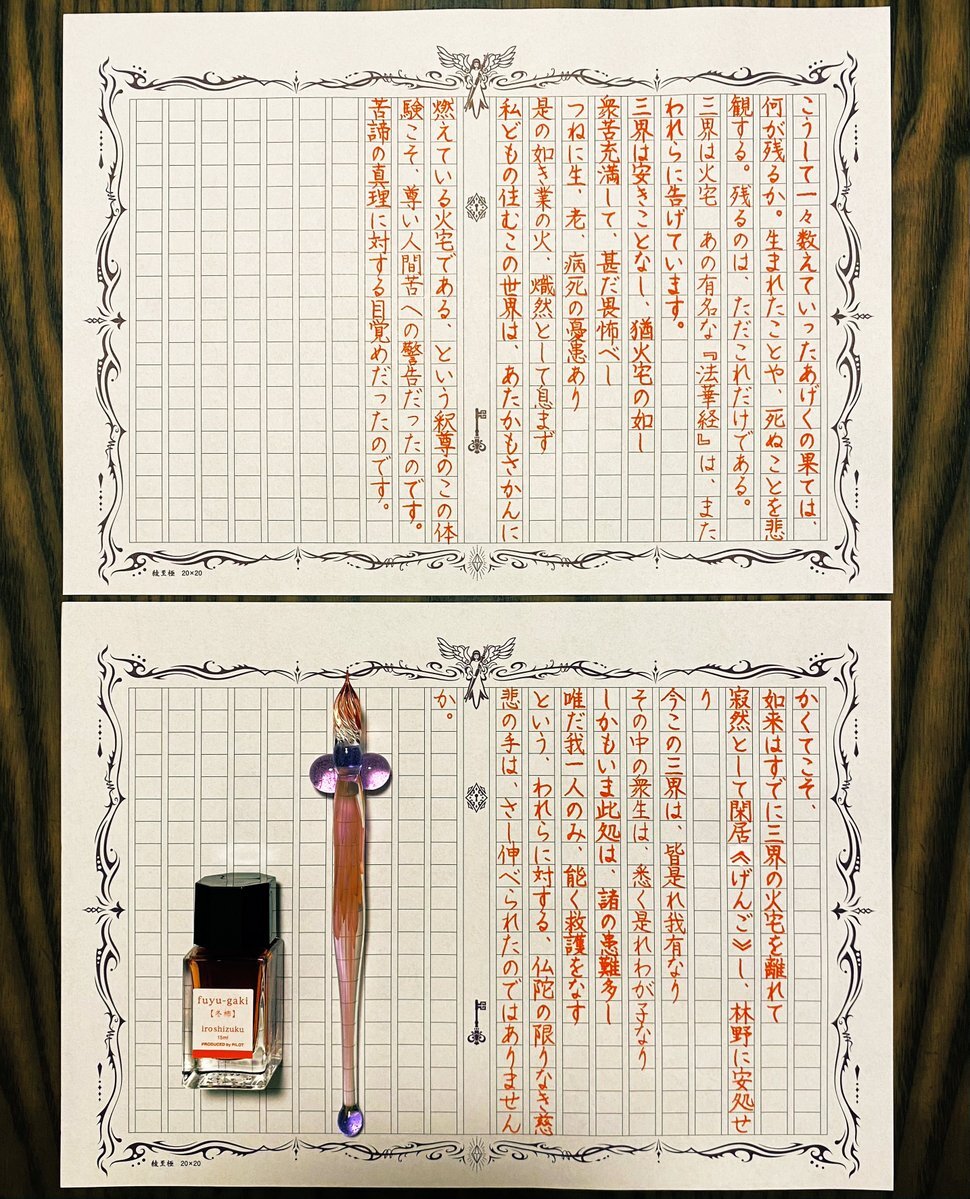 こうして一々数えていったあげくの果ては、
何が残るか。生まれたことや、死ぬことを悲
観する。残るのは、ただこれだけである。
三界は火宅　あの有名な『法華経』は、また
われらに告げています。
三界は安きことなし、猶火宅の如し
衆苦充満して、甚だ畏怖べし
つねに生、老、病死の憂患あり
是の如き業の火、熾然として息まず
私どもの住むこの世界は、あたかもさかんに
燃えている火宅である、という釈尊のこの体
験こそ、尊い人間苦への警告だったのです。
苦諦の真理に対する目覚めだったのです。
綾里極　20×20
かくてこそ、
如来はすでに三界の火宅を離れて
寂然として閑居《げんご》し、林野に安処せ
り
今この三界は、皆是れ我有なり
その中の衆生は、悉く是れわが子なり
しかもいま此処は、諸の患難多し
唯だ我一人のみ、能く救護をなす
という、われらに対する、仏陀の限りなき慈
悲の手は、さし伸べられたのではありません
か。
fuyu-gaki
【冬柿】
iroshizuku
15ml
PRODUCED by PILOT
20×20